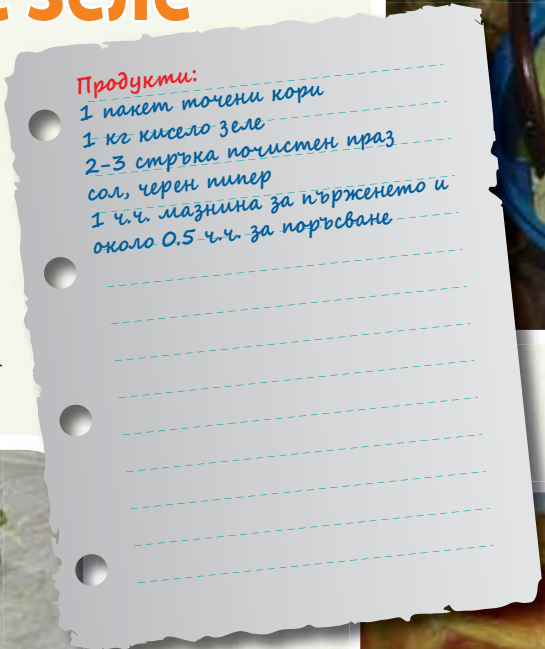 зеле
Продукти:
1 пакет точени кори
1 кг кисело зеле
2-3 стръка почистен праз
сол, черен пипер
1 ч.ч. мазнина за пърженето и
около 0.5 ч.ч. за поръсване